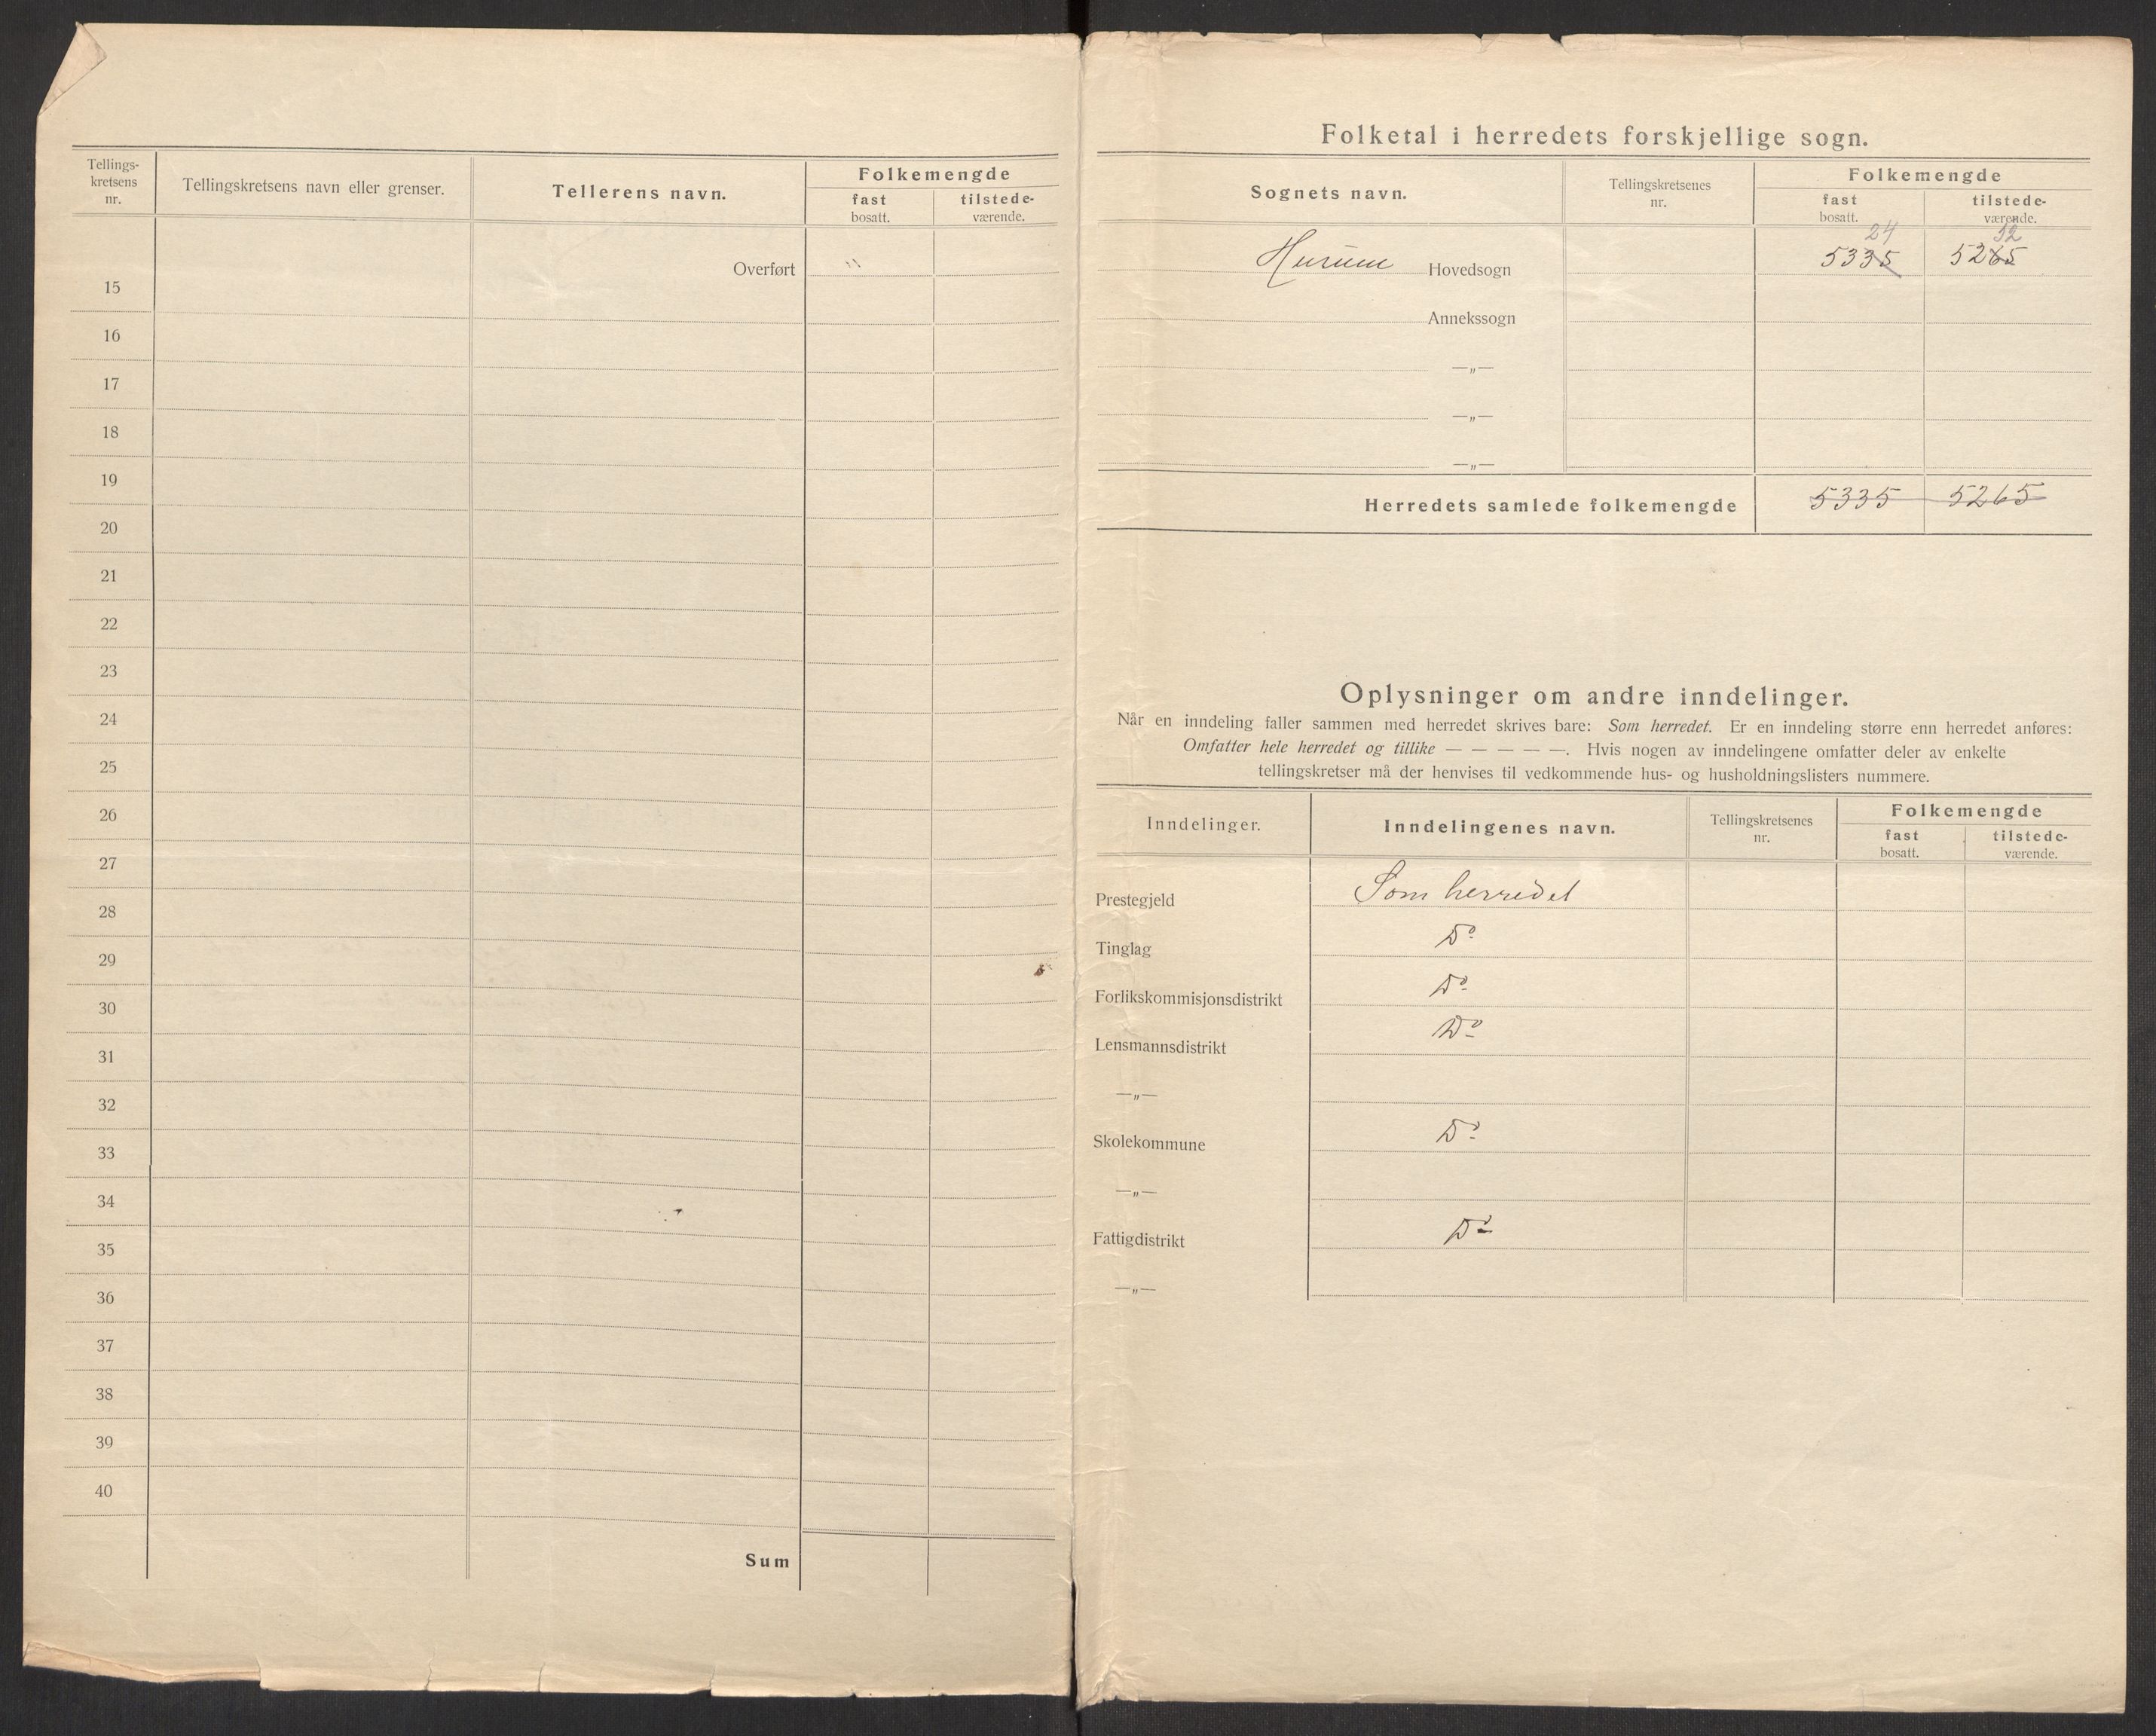 Tellings-
kretsens
nr.
Tellingskretsens navn eller grenser.
Tellerens navn.
Folkemengde
fast
bosatt.
tilstede-
værende.
Overført
"
15
16
17
18
19
20
21
22
23
24
25
26
27
28
29
30
31
32
33
34
35
36
37
38
39
40
Sum
Folketal i herredets forskjellige sogn.
Sognets navn.
Tellingskretsenes
nr.
Folkemengde
fast
bosatt.
tilstede-
værende.
24 52
Hurum Hovedsogn 5335 5265
Annekssogn
—„—
—„—
—„—
Herredets samlede folkemengde 5335 5265
Oplysninger om andre inndelinger.
Når en inndeling faller sammen med herredet skrives bare: Som herredet. Er en inndeling større enn herredet anføres:
Omfatter hele herredet og tillike — — — — —. Hvis nogen av inndelingene omfatter deler av enkelte
tellingskretser må der henvises til vedkommende hus- og husholdningslisters nummere.
Inndelinger.
Inndelingenes navn.
Tellingskretsenes
nr.
Folkemengde
fast
bosatt.
tilstede-
værende.
Prestegjeld Som herredet
Tinglag Do
Forlikskommisjonsdistrikt Do
Lensmannsdistrikt Do
—„—
Skolekommune Do
—„—
Fattigdistrikt Do
—„—